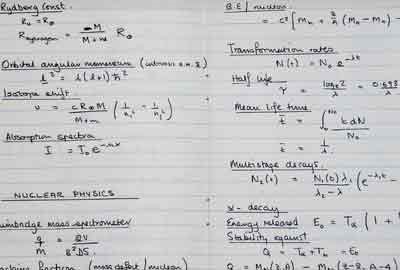 Rydberg Const.
R₀ = R∞
R hydrogen = M / M+m R∞
Orbital angular momentum (intrinsic
l² = l(l+1)ħ²
Isotope shift.
υ = cR∞M / M+m (1/n₁² - 1/n₂²)
Absorption spectra
I = I₀e
NUCLEAR PHYSICS
mass spectrometer
q/M = 2V / B²D
fraction (mass defect / nucleon)
B.E / nucleon
= c² [Mn + Z/A (MH - Mn) -
Transformation rates
N(t) = N₀ e^-λt
Half life
τ = loge2 / λ = 0.693 / λ
Mean life time
t̄ = ∫₀^N₀ t dN / N₀
t̄ = 1/λ
Multistage decays.
N₂(t) = N₁(0) λ₁ / λ₂ - λ₁ (e^-λ₁t -
α - decay
Energy released E₀ = Tα (1 +
Stability against
Q = Tα + Tb = E₀
Q = M (Z,A) - M (Z-2, A-4)